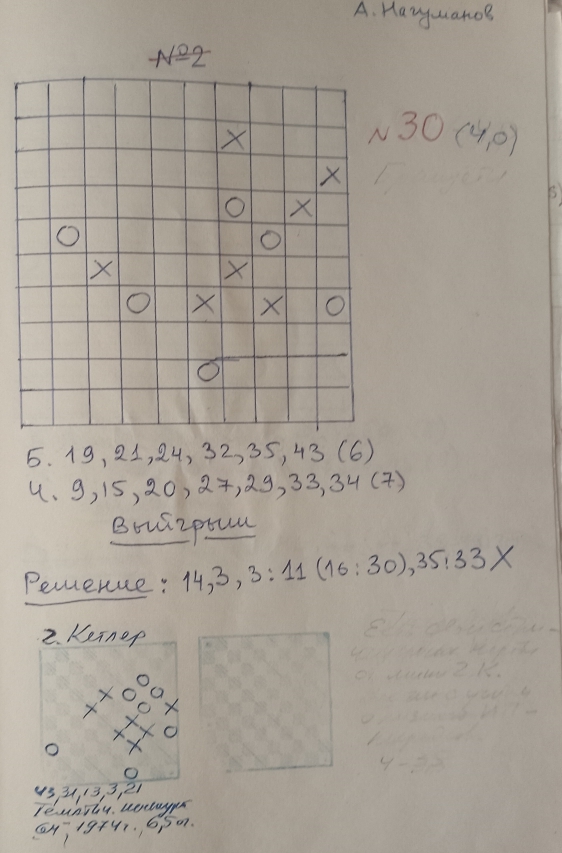 А. Нагуманов
№2
№30 (4,0)
Б. 19, 21, 24, 32, 35, 43 (6)
Ч. 9, 15, 20, 27, 29, 33, 34 (7)
Выйгрыш
Решение: 14, 3, 3:11 (16:30), 35:33 X
г. Кетлер
43, 31, 13, 3, 21
64, 1974г., 6,5 оч.